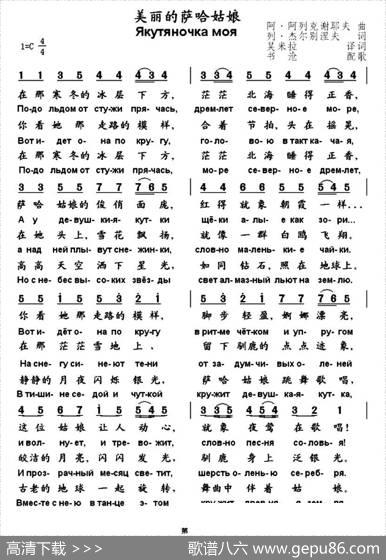 美丽的萨哈姑娘
Якутяночка моя
1=C 4/4
阿·阿列克谢耶夫 曲
列·杰尔别涅夫 词
吴米拉 译词
书沧 配歌
1 1 3 5 1 5 4 4 3 4 3 3 3 5 1 5 4 3 4
在那寒冬的冰层下方, 茫茫北海睡得正香,
По-до льдом от сту-жи пря-чась, дрем-лет се-вер-но-е мо-ре,
你看她那走路的模样, 合着节拍,头在摇晃,
Вот и-дет о-на по кру-гу, го-ло-во-ю в такт ка-ча-я,
在那寒冬的冰层下方, 茫茫北海睡得正香,
По-до льдом от сту-жи пря-чась, мо-ре се-вер-но-е дрем-лет,
3 3 5 5 1 7 7 6 5 4 4 6 6 5 5 5 4 3
萨哈姑娘的俊俏面庞, 红得就象朝霞一样...
А у де-вуш-ки-я-кут-ки щё-ки а-лы-е как зо-ри...
在她头上,雪花飘扬, 就像一群白鸥飞翔。
а над ней плы-вут сне-жин-ки, слов-но ма-лень-ки-е чай-ки.
高高天空洒下星光, 如同钻石,照在地球上。
Но с не-бес вы-со-ких звёз-ды свет ал-маз-ный льют на зем-лю.
5 5 1 5 5 3 2 1 1 2 1 7 7 7 6 5
你看她那走路的模样, 脚步轻盈,婀娜漂亮,
Вот и-дёт о-на по кру-гу в рит-ме чёт-ком и уп-ру-гом
在那茫茫雪地上、 留下驯鹿的点点迹象,
На сне-гу си-не-ют те-ни от за-дум-чи-вых о-ле-ней
静静的月夜闪烁银光, 萨哈姑娘跳舞歌唱,
В ти-ши-не се-дой и чут-кой кру-жит де-вуш-ка-я-кут-ка,
4 5 6 7 1 5 5 4 5 3 3 5 4 5 4 3 2 1
这位姑娘让人动心, 就象夜莺在歌唱!
и вол-ну-ет, и тре-во-жит, слов-но пес-ня со-ло-вья!
皎洁的月亮,闪闪发光, 驯鹿身上泛银光。
И проз-рач-ный ме-сяц све-тит, шерсть о-лень-ю се-реб-ря.
古老的地球一起旋转, 舞曲中伴着姑娘。
Вмес-те с не-ю в тан-це э-том
第
高清下载 >>>
歌谱八六 www.gepu86.com